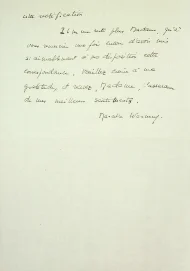 cette notification
Il me reste plus, Madame, qu'à
vous remercier une fois encore d'avoir mis
si aimablement à ma disposition cette
correspondance. Veuillez croire à ma
gratitude, et agréez, Madame, l'assurance
de mes meilleurs sentiments.